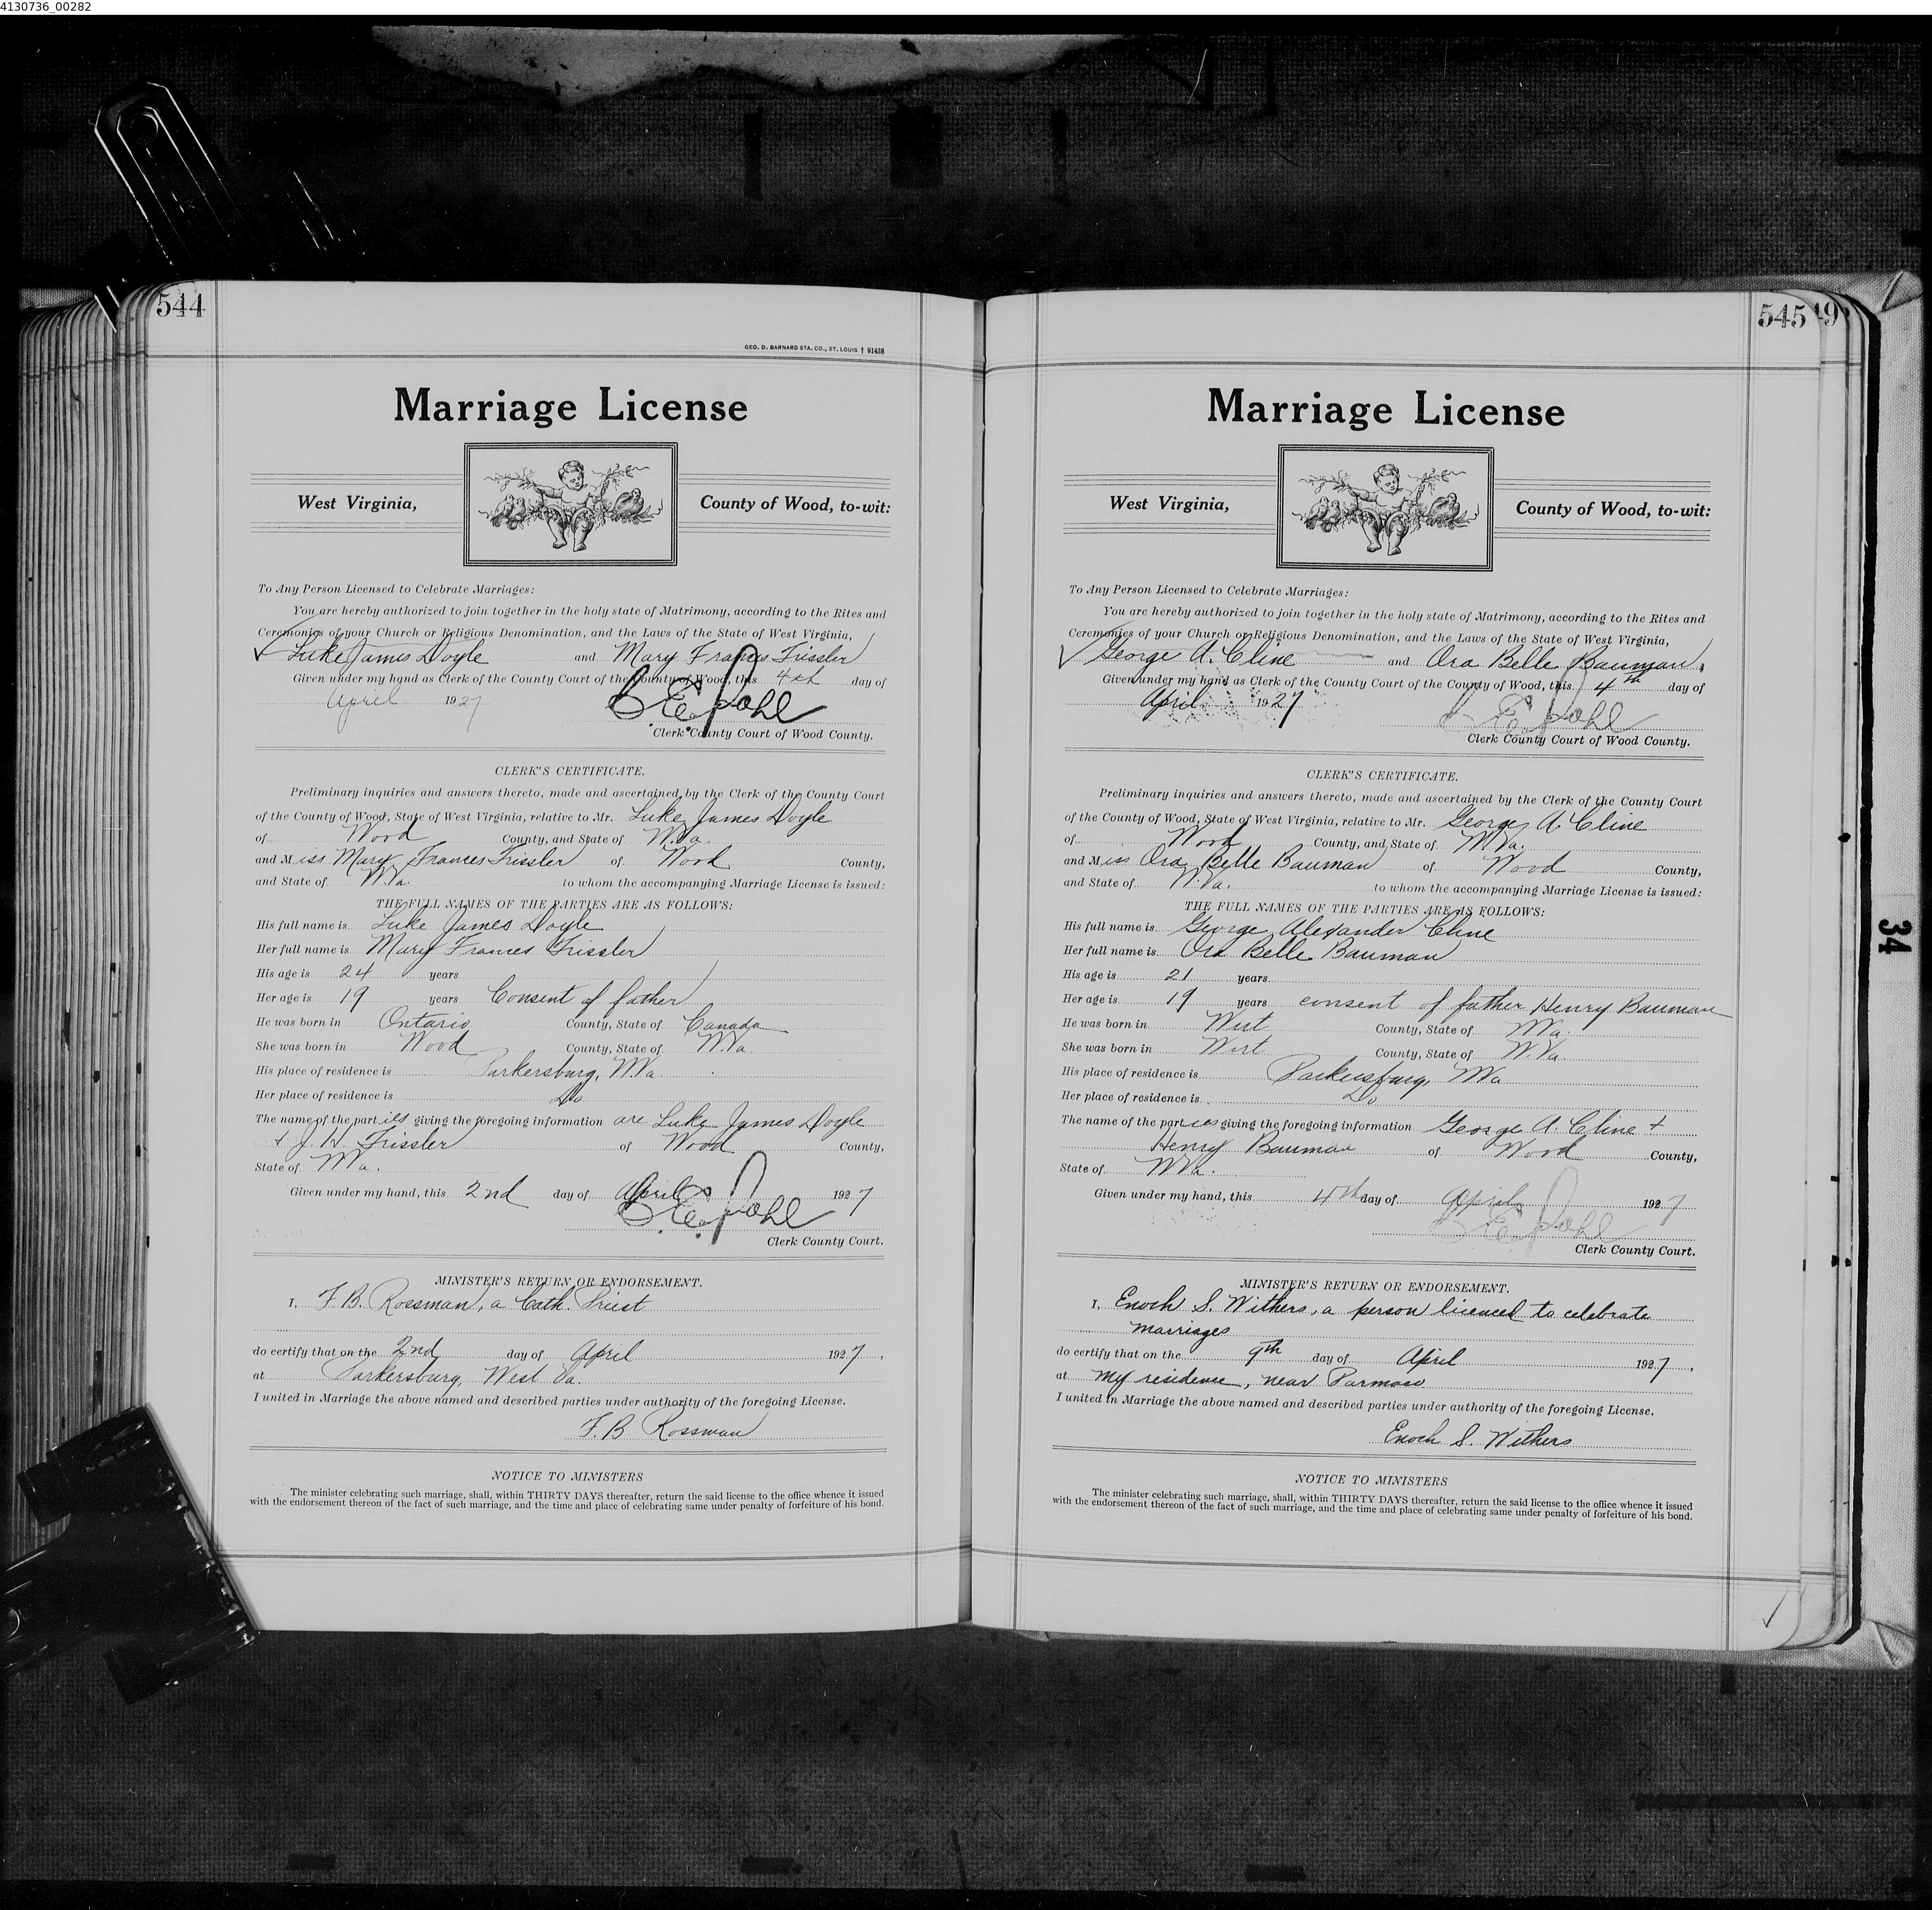 4130736_00282
544
GEO. D. BARNARD STA. CO., ST. LOUIS † 91438
Marriage License
West Virginia, County of Wood, to-wit:
To Any Person Licensed to Celebrate Marriages:
You are hereby authorized to join together in the holy state of Matrimony, according to the Rites and
Ceremonies of your Church or Religious Denomination, and the Laws of the State of West Virginia,
Luke James Doyle and Mary Frances Frissler
Given under my hand as Clerk of the County Court of the County of Wood, this 4th day of
April 1927 C E Pohl
Clerk County Court of Wood County.
CLERK'S CERTIFICATE.
Preliminary inquiries and answers thereto, made and ascertained by the Clerk of the County Court
of the County of Wood, State of West Virginia, relative to Mr. Luke James Doyle
of Wood County, and State of W.Va.
and Miss Mary Frances Frissler of Wood County,
and State of W.Va. to whom the accompanying Marriage License is issued:
THE FULL NAMES OF THE PARTIES ARE AS FOLLOWS:
His full name is Luke James Doyle
Her full name is Mary Frances Frissler
His age is 24 years
Her age is 19 years Consent of father
He was born in Ontario County, State of Canada
She was born in Wood County, State of W.Va.
His place of residence is Parkersburg, W.Va.
Her place of residence is Do
The name of the parties giving the foregoing information are Luke James Doyle
+ J. H. Frissler of Wood County,
State of W Va.
Given under my hand, this 2nd day of April 1927
C E Pohl
Clerk County Court.
MINISTER'S RETURN OR ENDORSEMENT.
I, F. B. Rossman, a Cath. Priest
do certify that on the 2nd day of April 1927,
at Parkersburg, West Va.
I united in Marriage the above named and described parties under authority of the foregoing License.
F. B Rossman
NOTICE TO MINISTERS
The minister celebrating such marriage, shall, within THIRTY DAYS thereafter, return the said license to the office whence it issued
with the endorsement thereon of the fact of such marriage, and the time and place of celebrating same under penalty of forfeiture of his bond.
545 49
Marriage License
West Virginia, County of Wood, to-wit:
To Any Person Licensed to Celebrate Marriages:
You are hereby authorized to join together in the holy state of Matrimony, according to the Rites and
Ceremonies of your Church or Religious Denomination, and the Laws of the State of West Virginia,
George A. Cline and Ora Belle Bauman,
Given under my hand as Clerk of the County Court of the County of Wood, this 4th day of
April 1927 C E Pohl
Clerk County Court of Wood County.
CLERK'S CERTIFICATE.
Preliminary inquiries and answers thereto, made and ascertained by the Clerk of the County Court
of the County of Wood, State of West Virginia, relative to Mr. George A. Cline
of Wood County, and State of W.Va.
and Miss Ora Belle Bauman of Wood County,
and State of W.Va. to whom the accompanying Marriage License is issued:
THE FULL NAMES OF THE PARTIES ARE AS FOLLOWS:
His full name is George Alexander Cline
Her full name is Ora Belle Bauman
His age is 21 years
Her age is 19 years consent of father Henry Bauman
He was born in Wirt County, State of W Va.
She was born in Wirt County, State of W.Va.
His place of residence is Parkersburg, W Va
Her place of residence is Do
The name of the parties giving the foregoing information George A. Cline +
Henry Bauman of Wood County,
State of W Va.
Given under my hand, this 4th day of April 1927
C E Pohl
Clerk County Court.
MINISTER'S RETURN OR ENDORSEMENT.
I, Enoch S. Withers, a person licenced to celebrate
marriages
do certify that on the 9th day of April 1927,
at my residence, near
I united in Marriage the above named and described parties under authority of the foregoing License.
Enoch S. Withers
NOTICE TO MINISTERS
The minister celebrating such marriage, shall, within THIRTY DAYS thereafter, return the said license to the office whence it issued
with the endorsement thereon of the fact of such marriage, and the time and place of celebrating same under penalty of forfeiture of his bond.
34